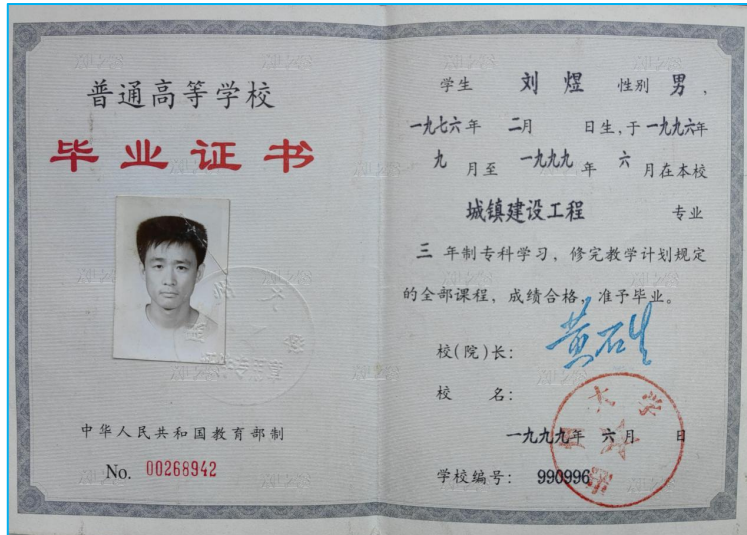 普通高等学校
毕业证书
中华人民共和国教育部制
No. 00268942
学生 刘煜 性别 男，
一九七六年 二月 日生，于一九九六年
九 月至 一九九九 年 六 月在本校
城镇建设工程 专业
三 年制专科学习，修完教学计划规定
的全部课程，成绩合格，准予毕业。
校(院)长： 黄石生
校 名：
一九九九年 六月 日
学校编号： 990996